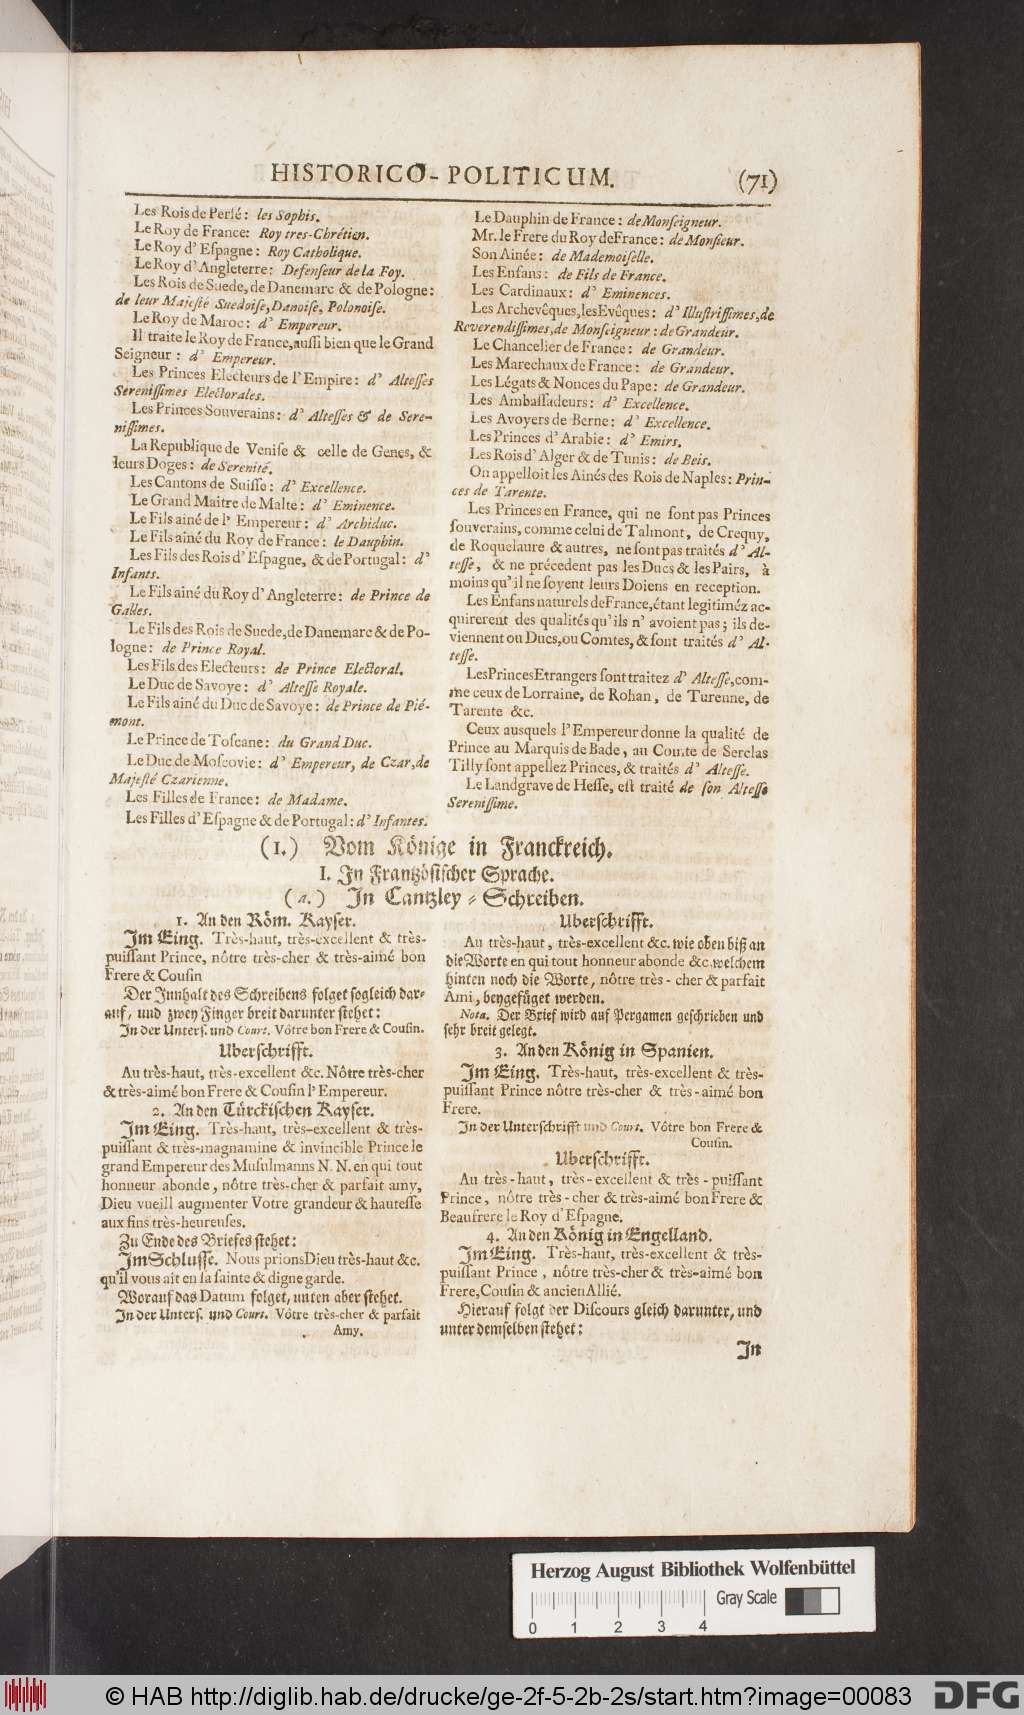 HISTORICO-POLITICUM.
(71)
Les Rois de Persé: les Sophis.
Le Roy de France: Roy tres-Chrétien.
Le Roy d'Espagne: Roy Catholique.
Le Roy d'Angleterre: Defenseur de la Foy.
Les Rois de Suede, de Danemarc & de Pologne:
de leur Majesté Suedoise, Danoise, Polonoise.
Le Roy de Maroc: d' Empereur.
Il traite le Roy de France, aussi bien que le Grand
Seigneur: d' Empereur.
Les Princes Electeurs de l'Empire: d' Altesses
Serenissimes Electorales.
Les Princes Souverains: d' Altesses & de Sere-
nissimes.
La Republique de Venise & celle de Genes, &
leurs Doges: de Serenité.
Les Cantons de Suisse: d' Excellence.
Le Grand Maitre de Malte: d' Eminence.
Le Fils ainé de l' Empereur: d' Archiduc.
Le Fils ainé du Roy de France: le Dauphin.
Les Fils des Rois d'Espagne, & de Portugal: d'
Infants.
Le Fils ainé du Roy d'Angleterre: de Prince de
Galles.
Le Fils des Rois de Suede, de Danemarc & de Po-
logne: de Prince Royal.
Les Fils des Electeurs: de Prince Electoral.
Le Duc de Savoye: d' Altesse Royale.
Le Fils ainé du Duc de Savoye: de Prince de Pié-
mont.
Le Prince de Toscane: du Grand Duc.
Le Duc de Moscovie: d' Empereur, de Czar, de
Majesté Czarienne.
Les Filles de France: de Madame.
Les Filles d'Espagne & de Portugal: d' Infantes.
Le Dauphin de France: de Monseigneur.
Mr. le Frere du Roy de France: de Monsieur.
Son Ainée: de Mademoiselle.
Les Enfans: de Fils de France.
Les Cardinaux: d' Eminences.
Les Archevêques, les Evêques: d' Illustrissimes, de
Reverendissimes, de Monseigneur: de Grandeur.
Le Chancelier de France: de Grandeur.
Les Marechaux de France: de Grandeur.
Les Légats & Nonces du Pape: de Grandeur.
Les Ambassadeurs: d' Excellence.
Les Avoyers de Berne: d' Excellence.
Les Princes d'Arabie: d' Emirs.
Les Rois d'Alger & de Tunis: de Beis.
On appelloit les Ainés des Rois de Naples: Prin-
ces de Tarente.
Les Princes en France, qui ne sont pas Princes
souverains, comme celui de Talmont, de Crequy,
de Roquelaure & autres, ne sont pas traités d' Al-
tesse, & ne précedent pas les Ducs & les Pairs, à
moins qu'il ne soyent leurs Doiens en reception.
Les Enfans naturels de France, étant legitiméz ac-
quirerent des qualités qu'ils n' avoient pas; ils de-
viennent ou Ducs, ou Comtes, & sont traités d' Al-
tesse.
Les Princes Etrangers sont traitez d' Altesse, com-
me ceux de Lorraine, de Rohan, de Turenne, de
Tarente &c.
Ceux ausquels l'Empereur donne la qualité de
Prince au Marquis de Bade, au Comte de Serclas
Tilly sont appellez Princes, & traités d' Altesse.
Le Landgrave de Hesse, est traité de son Altesse
Serenissime.
(1.) Vom Könige in Franckreich.
I. In Frantzösischer Sprache.
(a.) In Cantzley-Schreiben.
1. An den Röm. Kayser.
Im Eing. Très-haut, très-excellent & très-
puissant Prince, nôtre très-cher & très-aimé bon
Frere & Cousin
Der Innhalt des Schreibens folget sogleich dar-
auf, und zwey Finger breit darunter stehet:
In der Unters. und Court. Vôtre bon Frere & Cousin.
Uberschrifft.
Au très-haut, très-excellent &c. Nôtre très-cher
& très-aimé bon Frere & Cousin l'Empereur.
2. An den Türckischen Kayser.
Im Eing. Très-haut, très-excellent & très-
puissant & très-magnamine & invincible Prince le
grand Empereur des Musulmanns N. N. en qui tout
honneur abonde, nôtre très-cher & parfait amy,
Dieu vueill augmenter Votre grandeur & hautesse
aux fins très-heureuses.
Zu Ende des Briefes stehet:
Im Schlusse. Nous prions Dieu très-haut &c.
qu'il vous ait en sa sainte & digne garde.
Worauf das Datum folget, unten aber stehet.
In der Unters. und Court. Vôtre très-cher & parfait
Amy.
Uberschrifft.
Au très-haut, très-excellent &c. wie oben biß an
die Worte en qui tout honneur abonde &c. welchem
hinten noch die Worte, nôtre très-cher & parfait
Ami, beygefüget werden.
Nota. Der Brief wird auf Pergamen geschrieben und
sehr breit gelegt.
3. An den König in Spanien.
Im Eing. Très-haut, très-excellent & très-
puissant Prince nôtre très-cher & très-aimé bon
Frere.
In der Unterschrifft und Court. Vôtre bon Frere &
Cousin.
Uberschrifft.
Au très-haut, très-excellent & très-puissant
Prince, nôtre très-cher & très-aimé bon Frere &
Beaufrere le Roy d'Espagne.
4. An den König in Engelland.
Im Eing. Très-haut, très-excellent & très-
puissant Prince, nôtre très-cher & très-aimé bon
Frere, Cousin & ancien Allié.
Hierauf folgt der Discours gleich darunter, und
unter demselben stehet:
In
Herzog August Bibliothek Wolfenbüttel
Gray Scale
0 1 2 3 4
© HAB http://diglib.hab.de/drucke/ge-2f-5-2b-2s/start.htm?image=00083
DFG